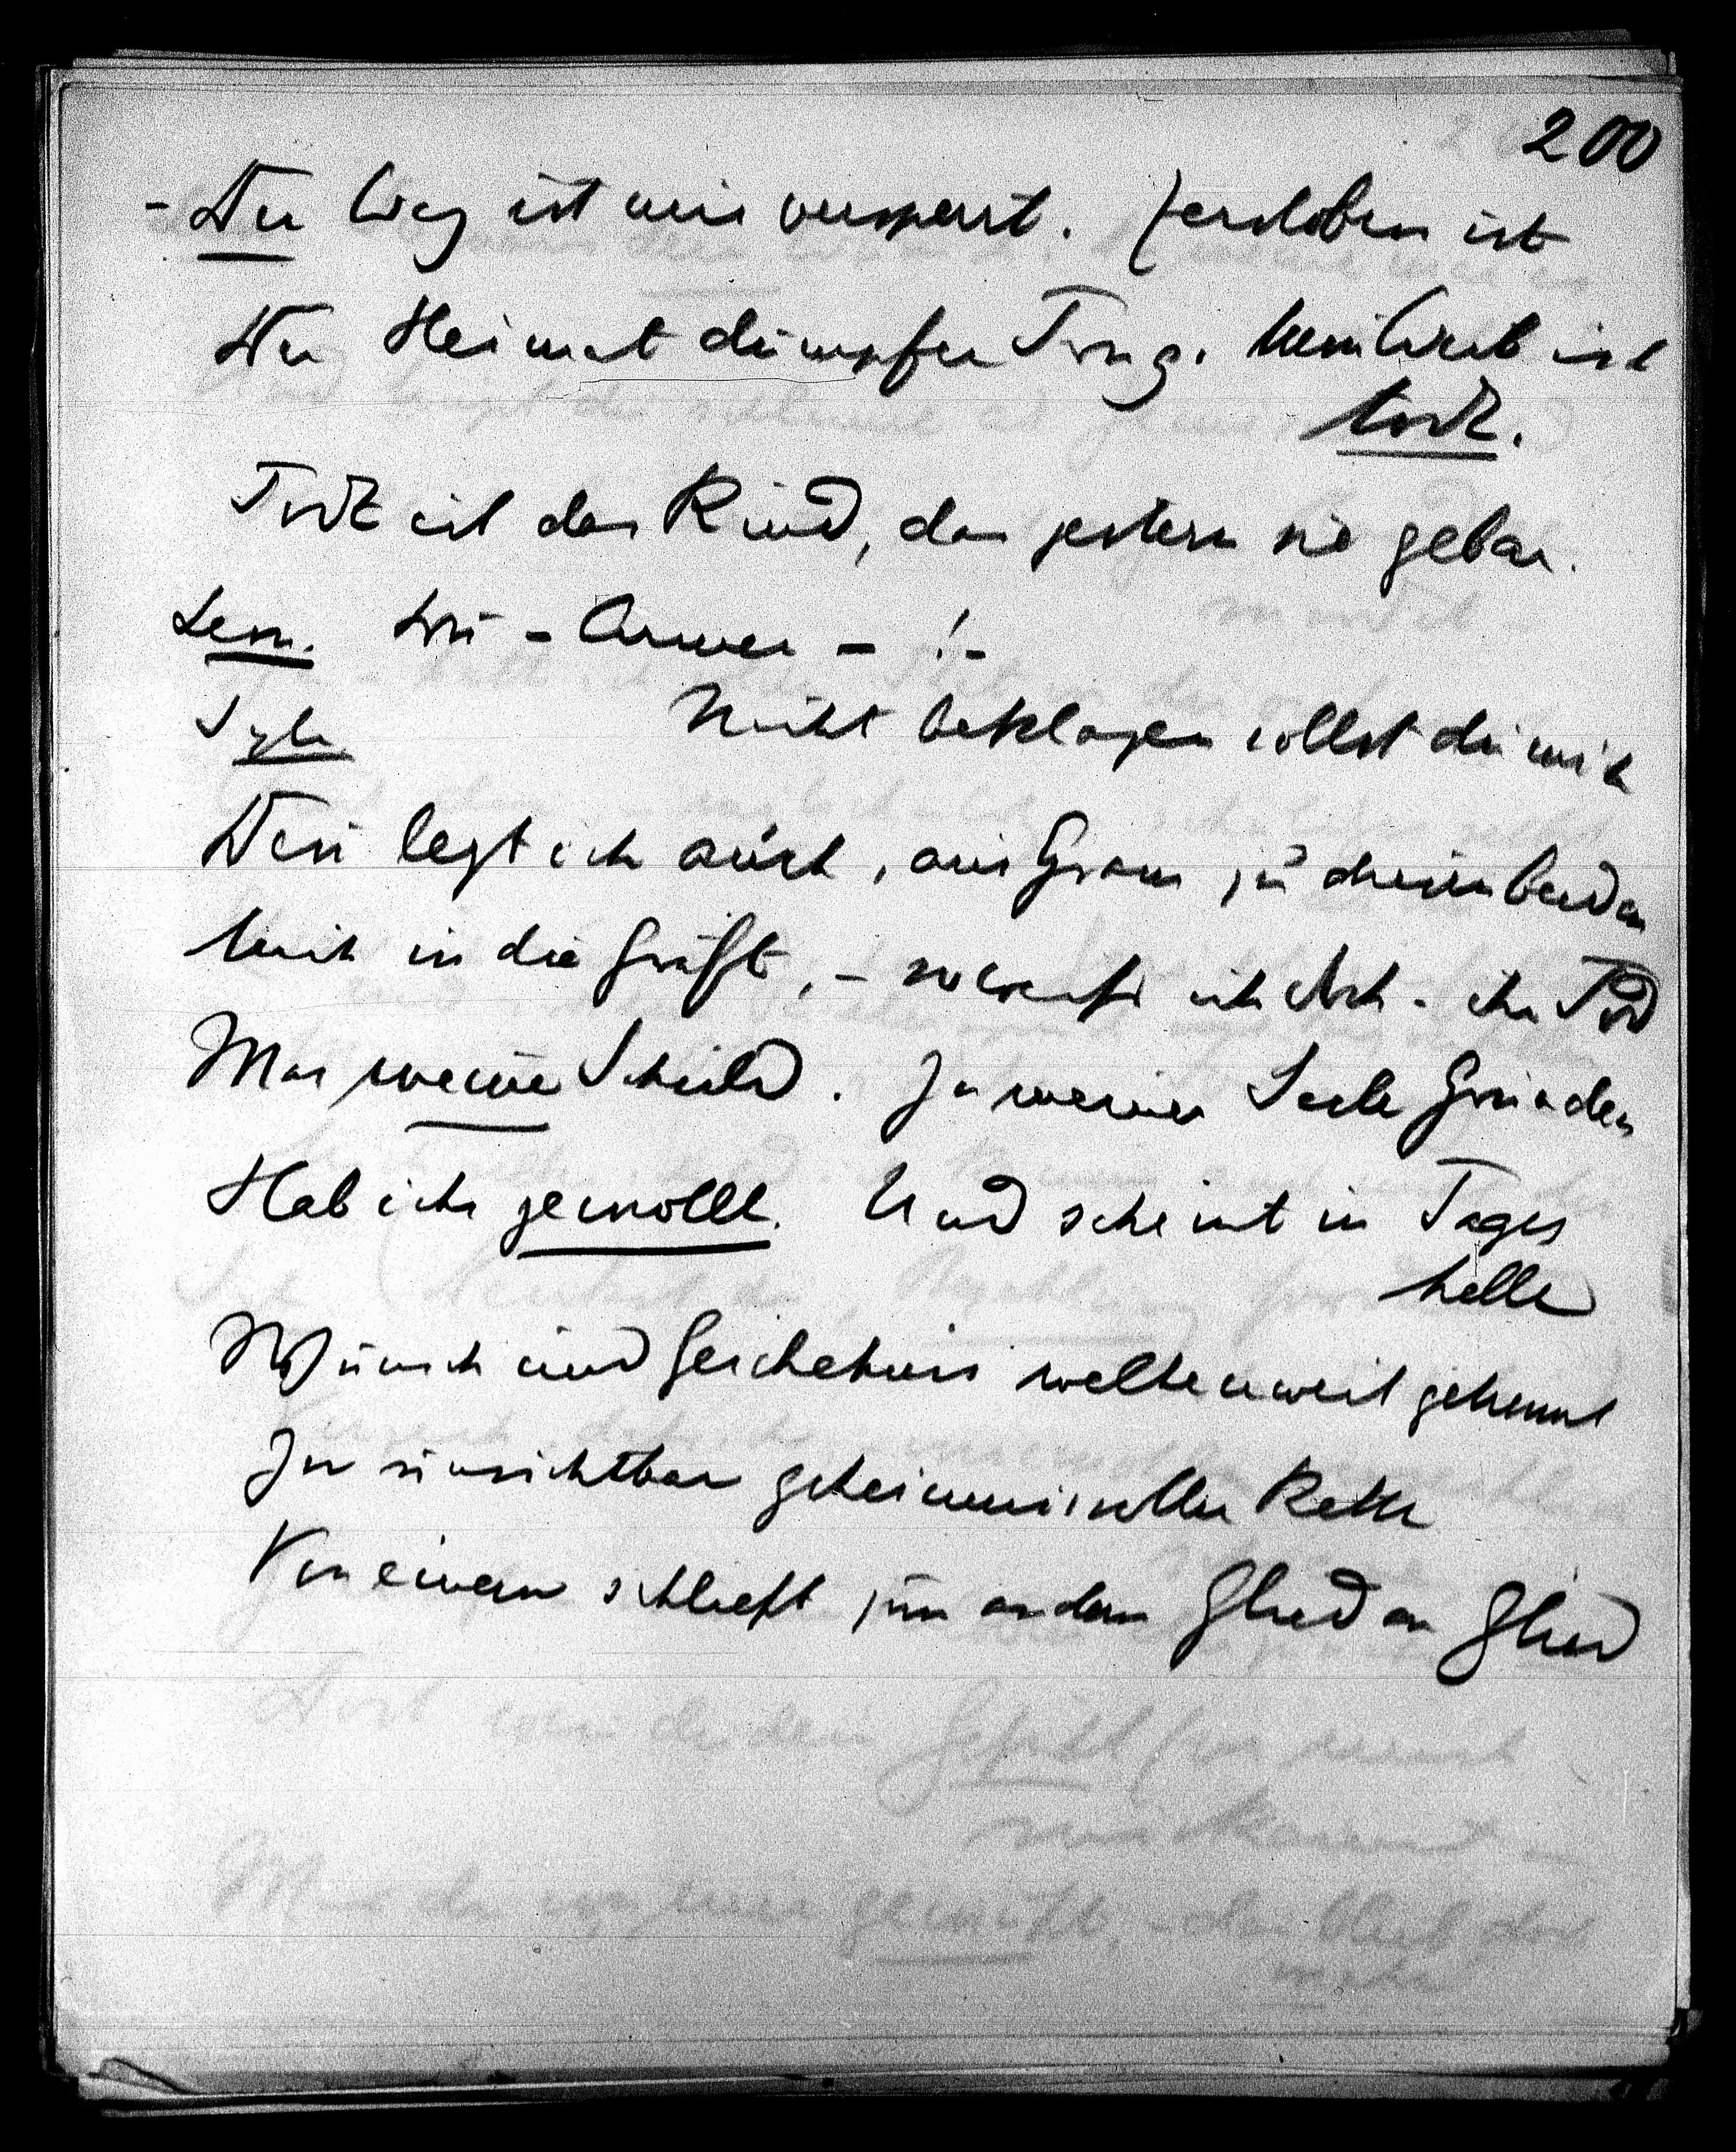 200
- Der Weg ist mir versperrt. Zerstoben ist
Der Heimat dumpfer Trug. Mein Weib ist
todt.
Todt ist das Kind, das gestern sie gebar.
Lem. Du - Armer - ! -
Nicht beklagen sollst du mich
Denn legt ich auch, aus Gram, zu diesen beiden
Mich in die Gruft, - so weiss ich doch - ihr Tod
War meine Schuld. In meiner Seele Gründen
Hab ichs gewollt. Und scheint in Tages
helle
Wunsch und Geschehniss weltenweit getrennt
In unsichtbar geheimnisvoller Kette
Von einem schliesst zum andern Glied an Glied